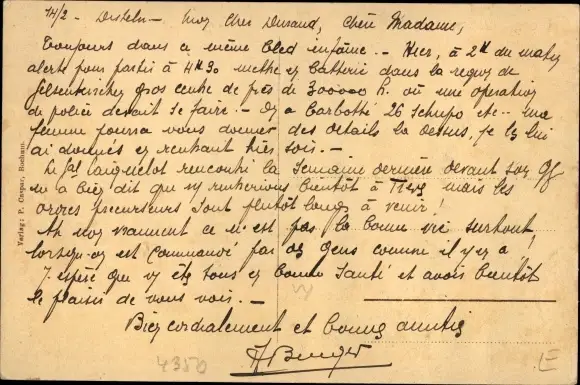 14/2 - Disteln - Mon Cher Durand, Chère Madame,
Toujours dans ce même bled infâme. - Hier, à 2h du matin
alerte pour partir à 4h30 mettre en batterie dans la région de
Gelsenkirchen gros centre de près de 300000 h. où une opération
de police devait se faire. - On a barbotté 26 Schupo etc - ma
femme pourra vous donner des détails là dessus, je les lui
ai donnés en rentrant hier soir. -
Le gal rencontré la semaine dernière devant son
m'a bien dit que ns rentrerions bientôt à Trèves mais les
ordres précurseurs sont plutôt longs à venir!
Ah non vraiment ce n'est pas la bonne vie surtout
lorsqu'on est commandé par des gens comme il y en a
J'espère que vs êtes tous en bonne santé et avoir bientôt
le plaisir de vous voir. -
Bien cordialement et bonnes amitiés
4350
E
Verlag: P. Caspar, Bochum.